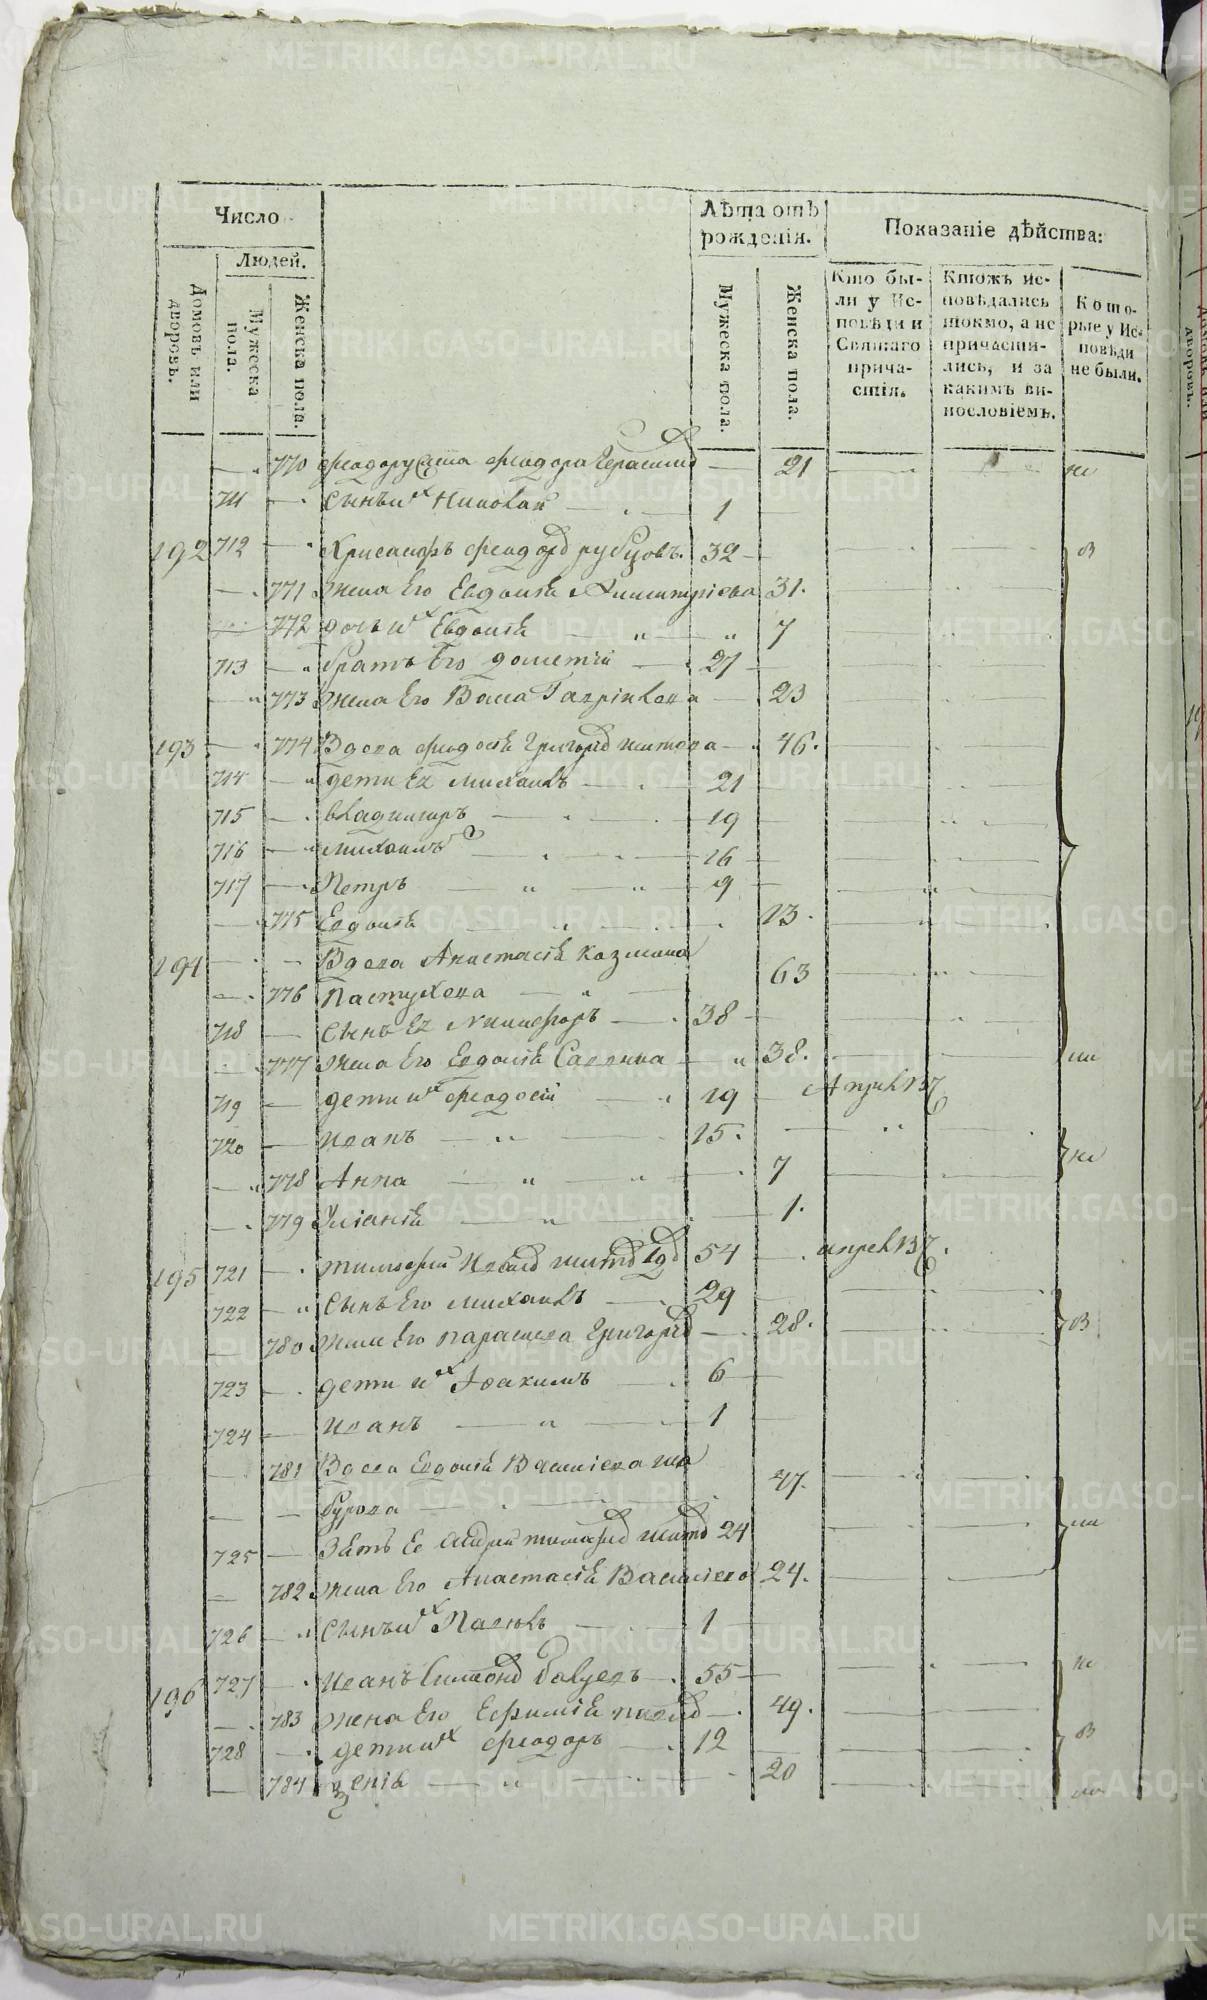 Число
Лѣта отъ рожденія.
Показаніе дѣйства:
Домовъ или дворовъ.
Людей.
Мужеска пола.
Женска пола.
Мужеска пола.
Женска пола.
Кто бы-
ли у Ис-
повѣди и
Святаго
прича-
стія.
Ктожъ ис-
повѣдались
токмо, а не
причасти-
лись, и за
какимъ ви-
нословіемъ.
Кото-
рые у Ис-
повѣди
не были.
770 Феодора Герасимо 21
711 Сынъ их Николай 1
192 712 Хрисанфъ Феодоро Рубцовъ 32
771 Жена Его Евдокія Димитріева 31.
772 дочь их Евдокія 7
713 братъ Его Дометій 27
773 Жена Его Васса Гавріилова 23
193 774 Вдова Феодосія Григорьева Шитова 46.
714 дети Ея Михаилъ 21
715 владимиръ 19
716 Михаилъ 16
717 Петръ 9
775 Евдокія 13.
194 Вдова Анастасія Козмина
776 Пастухова 63
718 Сынъ Ея Никифоръ 38
777 Жена Его Евдокія Саввина 38.
719 дети их Феодосій 19 Апрел 13
720 Иванъ 15.
778 Анна 7
779 Іуліанія 1.
195 721 Тимофей Иванов Шитов 54 апрел 13
722 Сынъ Его Михаилъ 29
780 Жена Его Параскева Григорье 28.
723 дети их Іоакимъ 6
724 Иванъ 1
781 Вдова Евдокія Василіева Ша
бурова 47.
725 Зять Ее Андрей Тимофее Шито 24
782 Жена Его Анастасія Василіева 24.
726 Сынъ их Павелъ 1
196 727 Иванъ Симеоно 55
783 Жена Его Ефимія Павло 49.
728 дети их Феодоръ 12
784 Ксенія 20